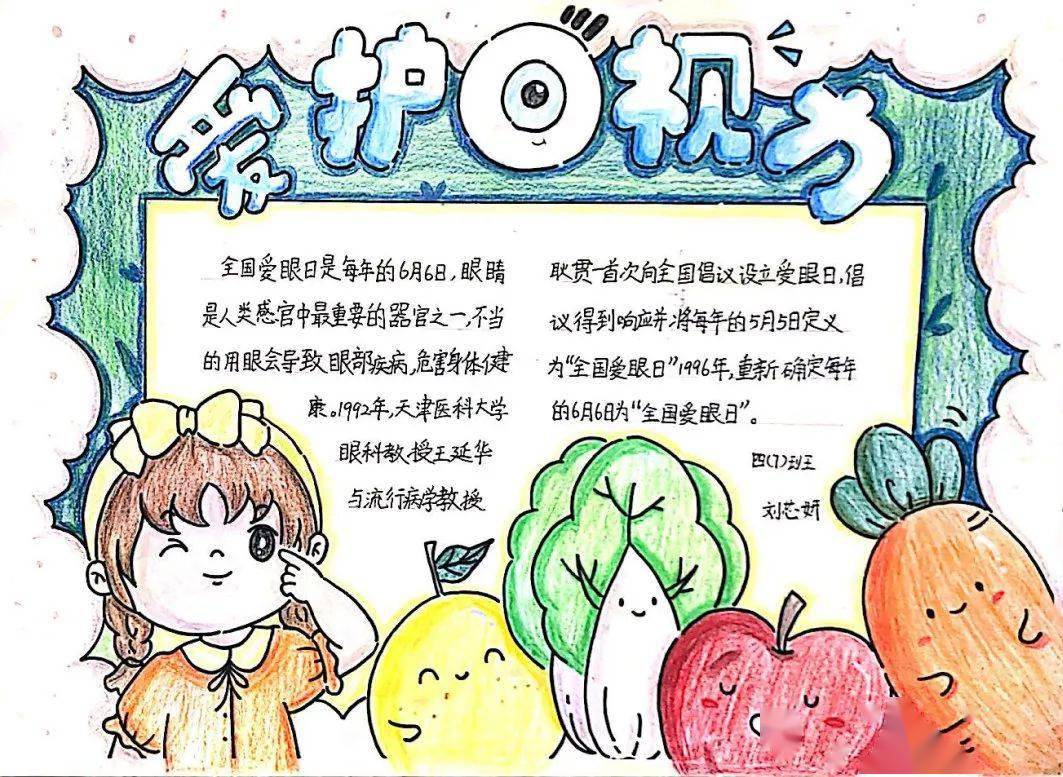 爱护视力
全国爱眼日是每年的6月6日,眼睛
是人类感官中最重要的器官之一,不当
的用眼会导致眼部疾病,危害身体健
康。1992年,天津医科大学
眼科教授王延华
与流行病学教授
耿贯一首次向全国倡议设立爱眼日,倡
议得到响应并将每年的5月5日定义
为“全国爱眼日”1996年,重新确定每年
的6月6日为“全国爱眼日”。
四(7)班
刘芯妍